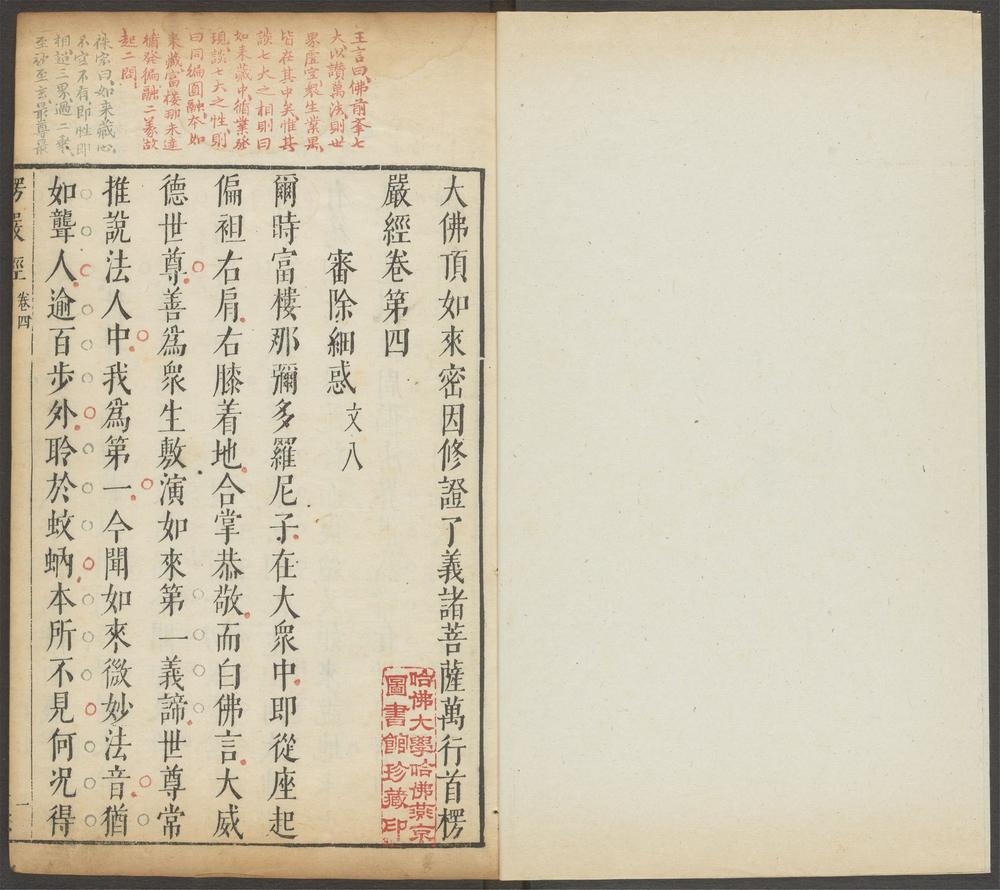 王言曰佛前舉七
大以讚萬法則世
界虛空衆生業果
皆在其中矣惟其
談七大之相則曰
如來藏中循業發
現談七大之性則
曰同編圓融本如
來藏富樓那未達
循發徧融二義故
起二問
徐宗曰如來藏心
不空不有即性即
相超三界過二乘
至妙至玄最尊最
大佛頂如來密因修證了義諸菩薩萬行首楞
嚴經卷第四
審除細惑 文八
爾時富樓那彌多羅尼子在大衆中即從座起
偏袒右肩右膝着地合掌恭敬而白佛言大威
德世尊善爲衆生敷演如來第一義諦世尊常
推說法人中我爲第一今聞如來微妙法音猶
如聾人逾百步外聆於蚊蚋本所不見何況得
楞嚴經 卷四 一
哈佛大學哈佛燕京
圖書館珍藏印